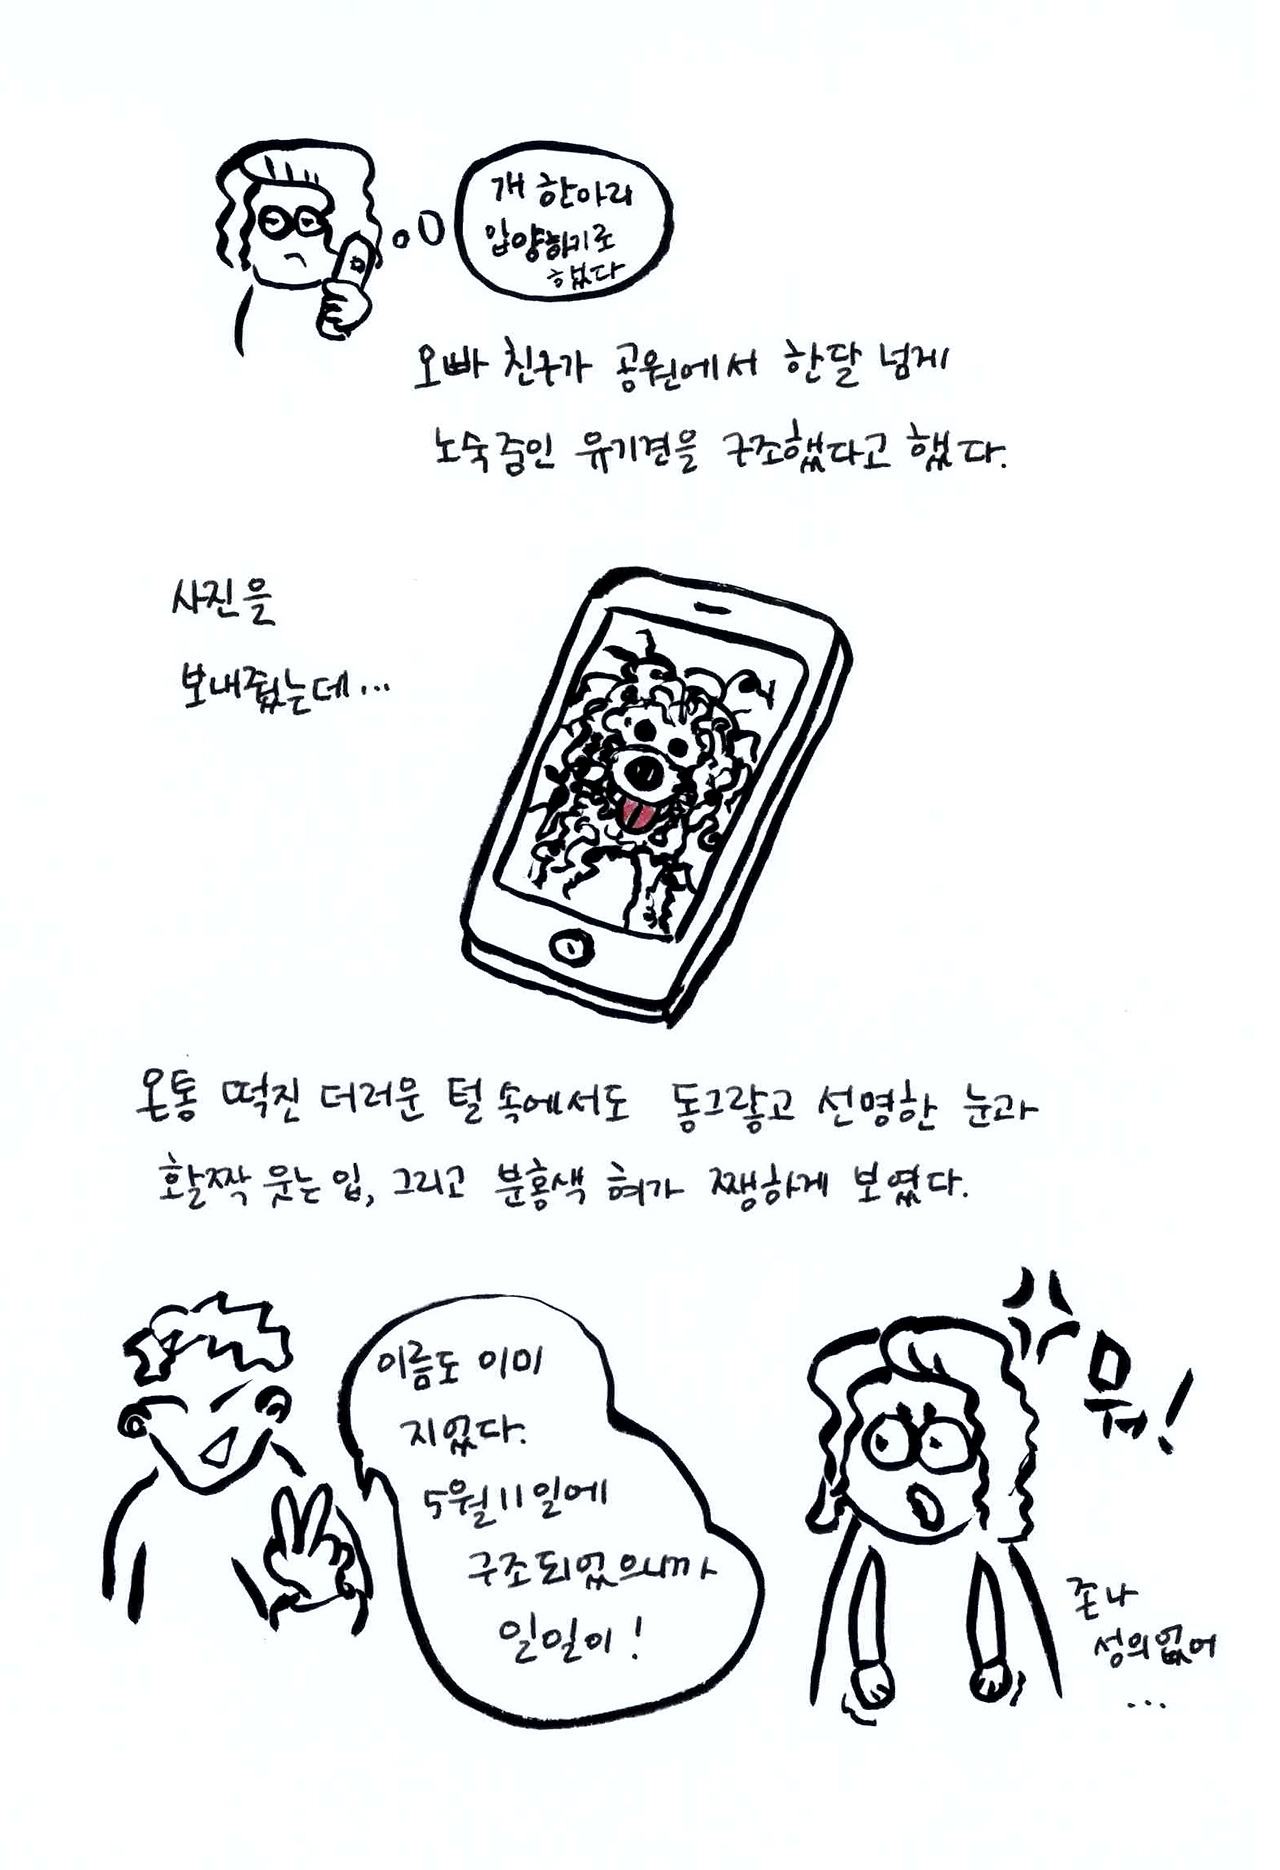 개 한마리
입양하기로
했다
오빠 친구가 공원에서 한달 넘게
노숙중인 유기견을 구조했다고 했다.
사진을
보내줬는데...
온통 떡진 더러운 털 속에서도 동그랗고 선명한 눈과
활짝 웃는 입, 그리고 분홍색 혀가 쨍하게 보였다.
이름도 이미
지었다.
5월 11일에
구조되었으니까
일일이!
뭐!
존나
성의없어
...